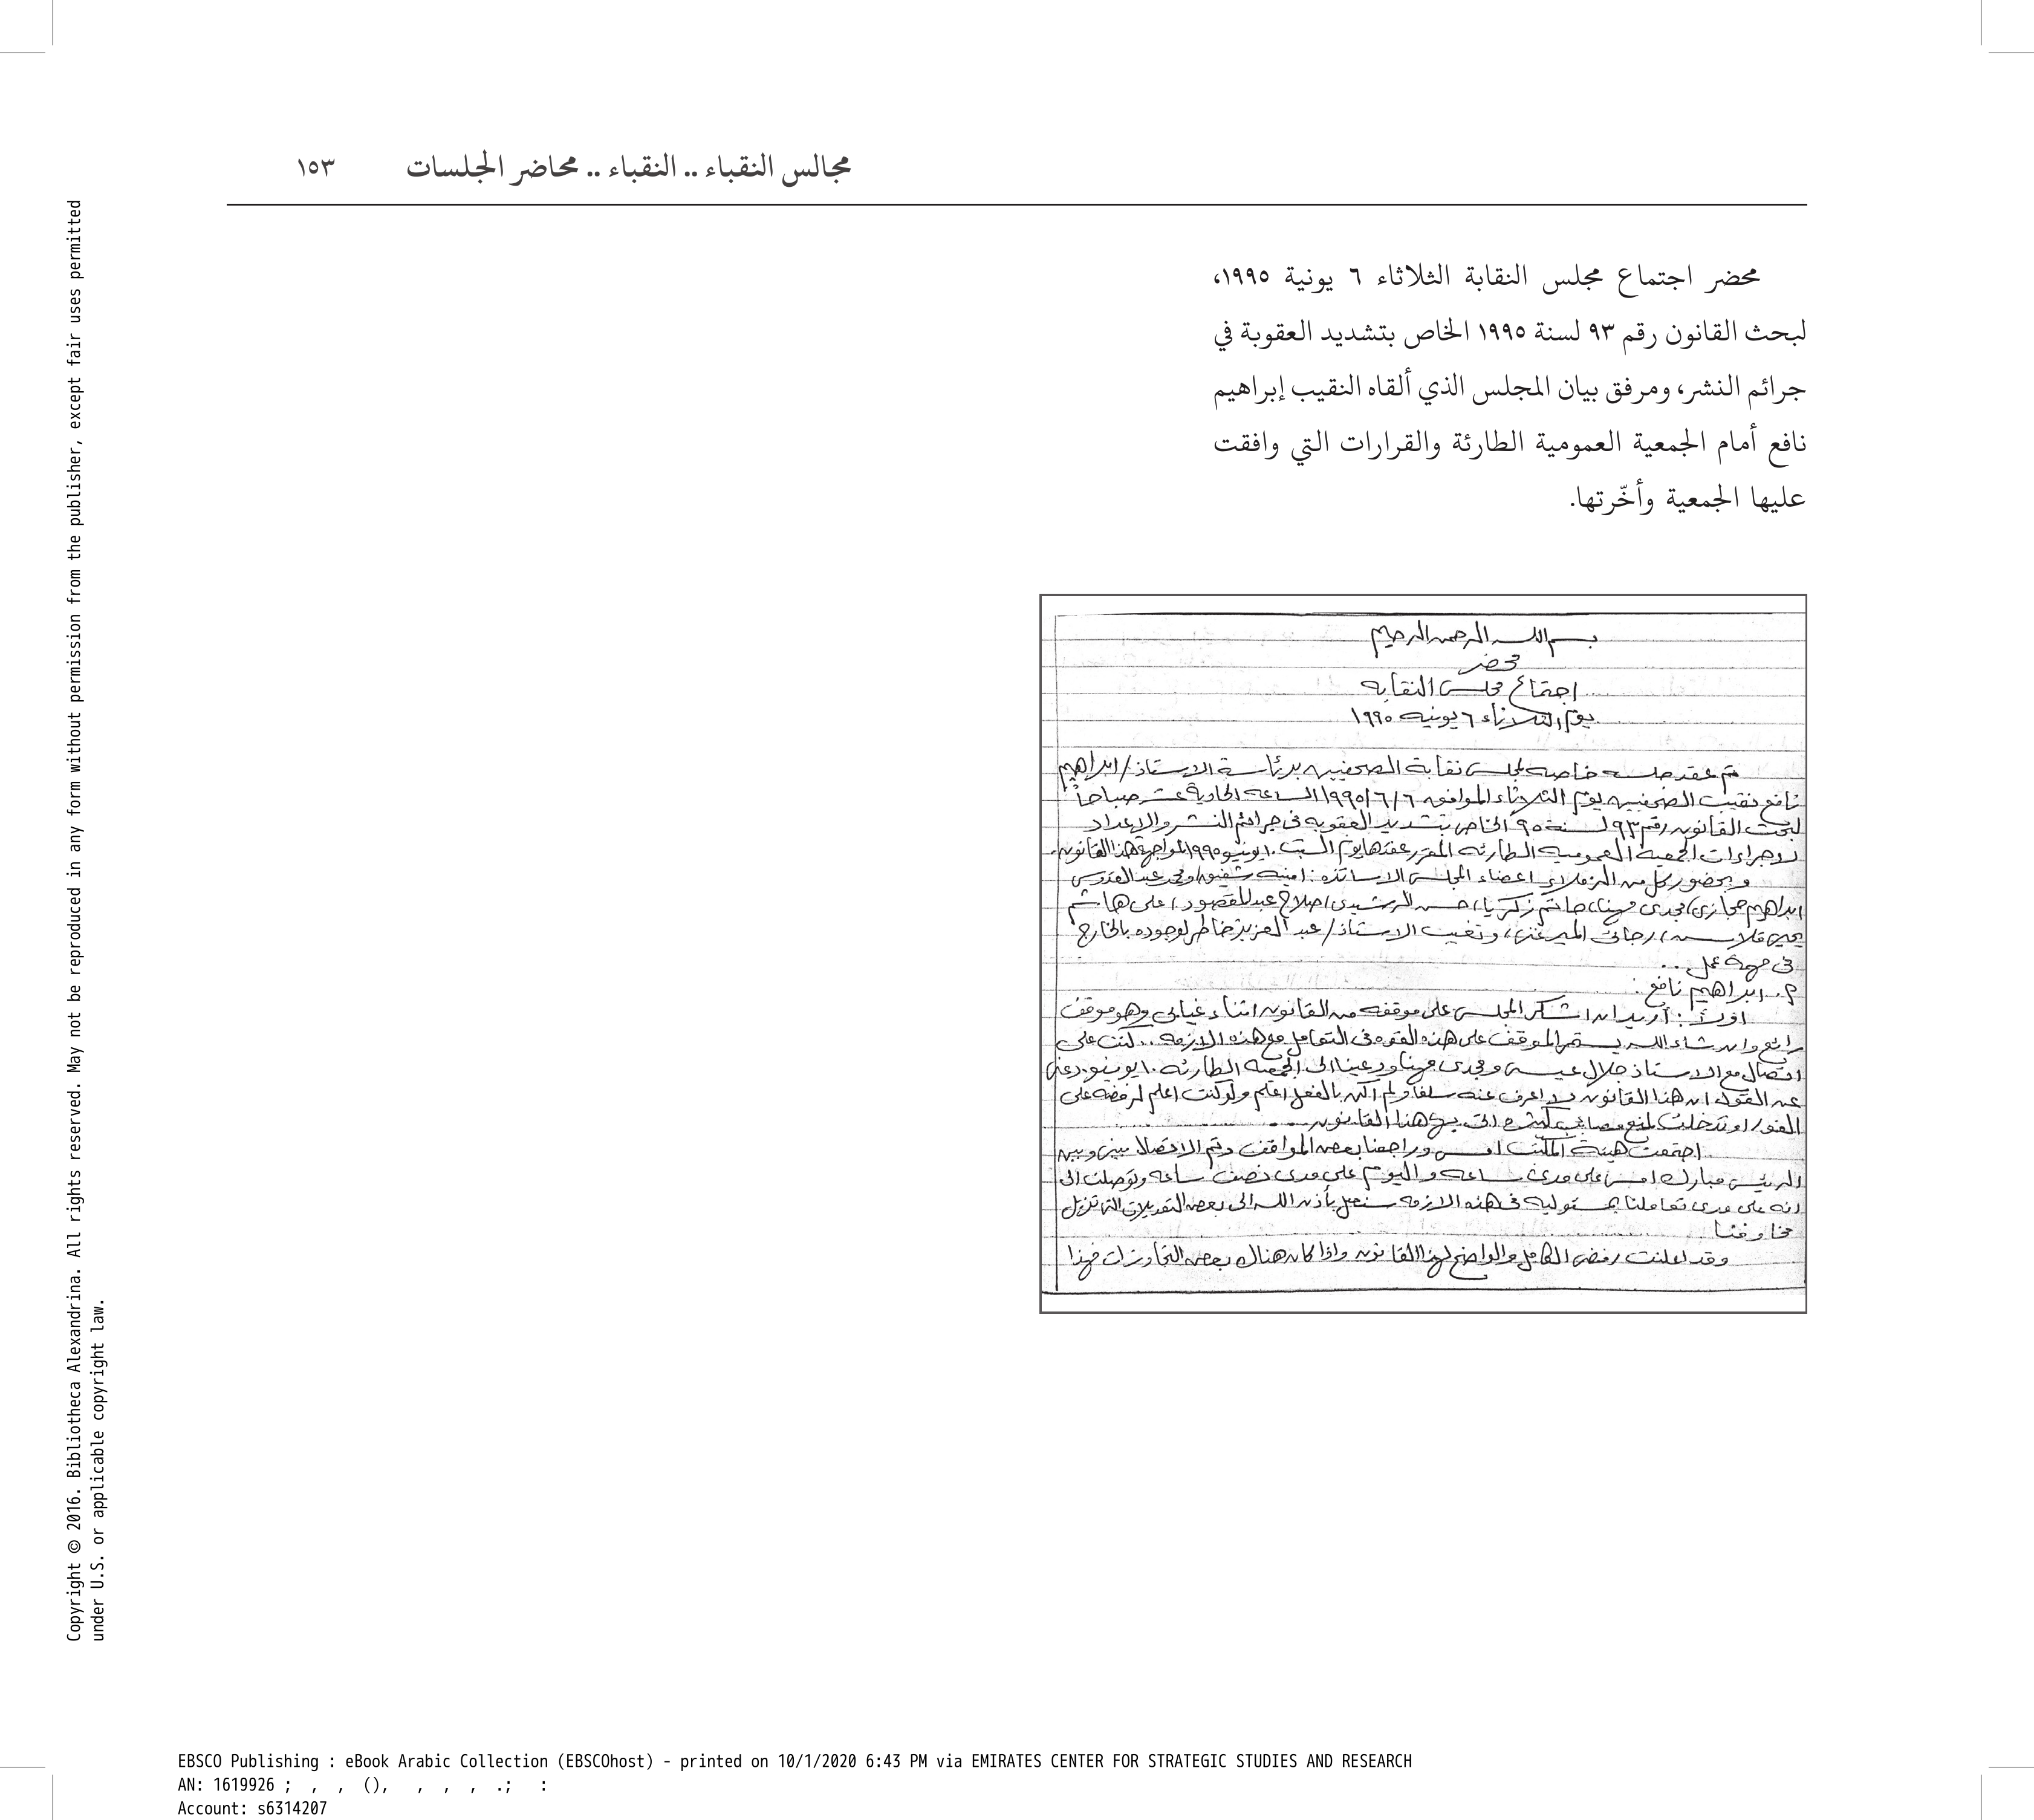 مجالس النقباء .. النقباء .. محاضر الجلسات ١٥٣
محضر اجتماع مجلس النقابة الثلاثاء ٦ يونية ١٩٩٥،
لبحث القانون رقم ٩٣ لسنة ١٩٩٥ الخاص بتشديد العقوبة في
جرائم النشر، ومرفق بيان المجلس الذي ألقاه النقيب إبراهيم
نافع أمام الجمعية العمومية الطارئة والقرارات التي وافقت
عليها الجمعية وأخّرتها.
بسم الله الرحمن الرحيم
محضر
اجتماع مجلس النقابه
يوم الثلاثاء ٦ يونيه ١٩٩٥
تم عقد جلسه خاصه لمجلس نقابة الصحفيين برئاسة الاستاذ / ابراهيم
نافع نقيب الصحفيين يوم الثلاثاء الموافق ١٩٩٥/٦/٦ الساعه الحادية عشر صباحاً
لبحث القانون رقم ٩٣ لسنة ٩٥ الخاص بتشديد العقوبه فى جرائم النشر والاعداد
لاجراءات الجمعية العموميه الطارئه المقرر عقدها يوم السبت ١٠ يونيو ١٩٩٥ لمواجهة هذا القانون.
وبحضور كل من الزملاء اعضاء المجلس الاساتذه : امينه شفيق، ومحمد عبد القدوس
ابراهيم حجازى، مجدى مهنا، حاتم زكريا، حسن الرشيدى، صلاح عبد المقصود، على هاشم
يحيى قلاش، رجائى الميرغنى، وتغيب الاستاذ / عبد العزيز خاطر لوجوده بالخارج
فى مهمة عمل ..
م. ابراهيم نافع :
اولاً : أريد ان اشكر المجلس على موقفه من القانون اثناء غيابى وهو موقف
رائع وان شاء الله يستمر الموقف على هذه القوه فى التعامل مع هذه الازمه .. كنت على
اتصال مع الاستاذ جلال عيسى ومجدى مهنا ودعينا الى الجمعيه الطارئه ١٠ يونيو
عن القول ان هذا القانون اعرف عنه سلفا ولم اكن بالفعل اعلم ولو كنت اعلم لرفضته على
الفور او تدخلت لمنع مصائب كثيره هذا القانون ...
اجتمعت هيئة المكتب امس وراجعنا بعض المواقف وتم الاتصال بينى وبين
الرئيس مبارك امس على مدى ساعه واليوم على مدى نصف ساعه وتوصلت الى
انه على مدى تعاملنا بمسئوليه فى هذه الازمه سنصل بأذن الله الى بعض التعديلات التى تزيل
مخاوفنا
وقد اعلنت رفضى الكامل والواضح لهذا القانون واذا كان هناك بعض التجاوزات فهذا
Copyright © 2016. Bibliotheca Alexandrina. All rights reserved. May not be reproduced in any form without permission from the publisher, except fair uses permitted
under U.S. or applicable copyright law.
EBSCO Publishing : eBook Arabic Collection (EBSCOhost) - printed on 10/1/2020 6:43 PM via EMIRATES CENTER FOR STRATEGIC STUDIES AND RESEARCH
AN: 1619926 ; , , (), , , , .; :
Account: s6314207